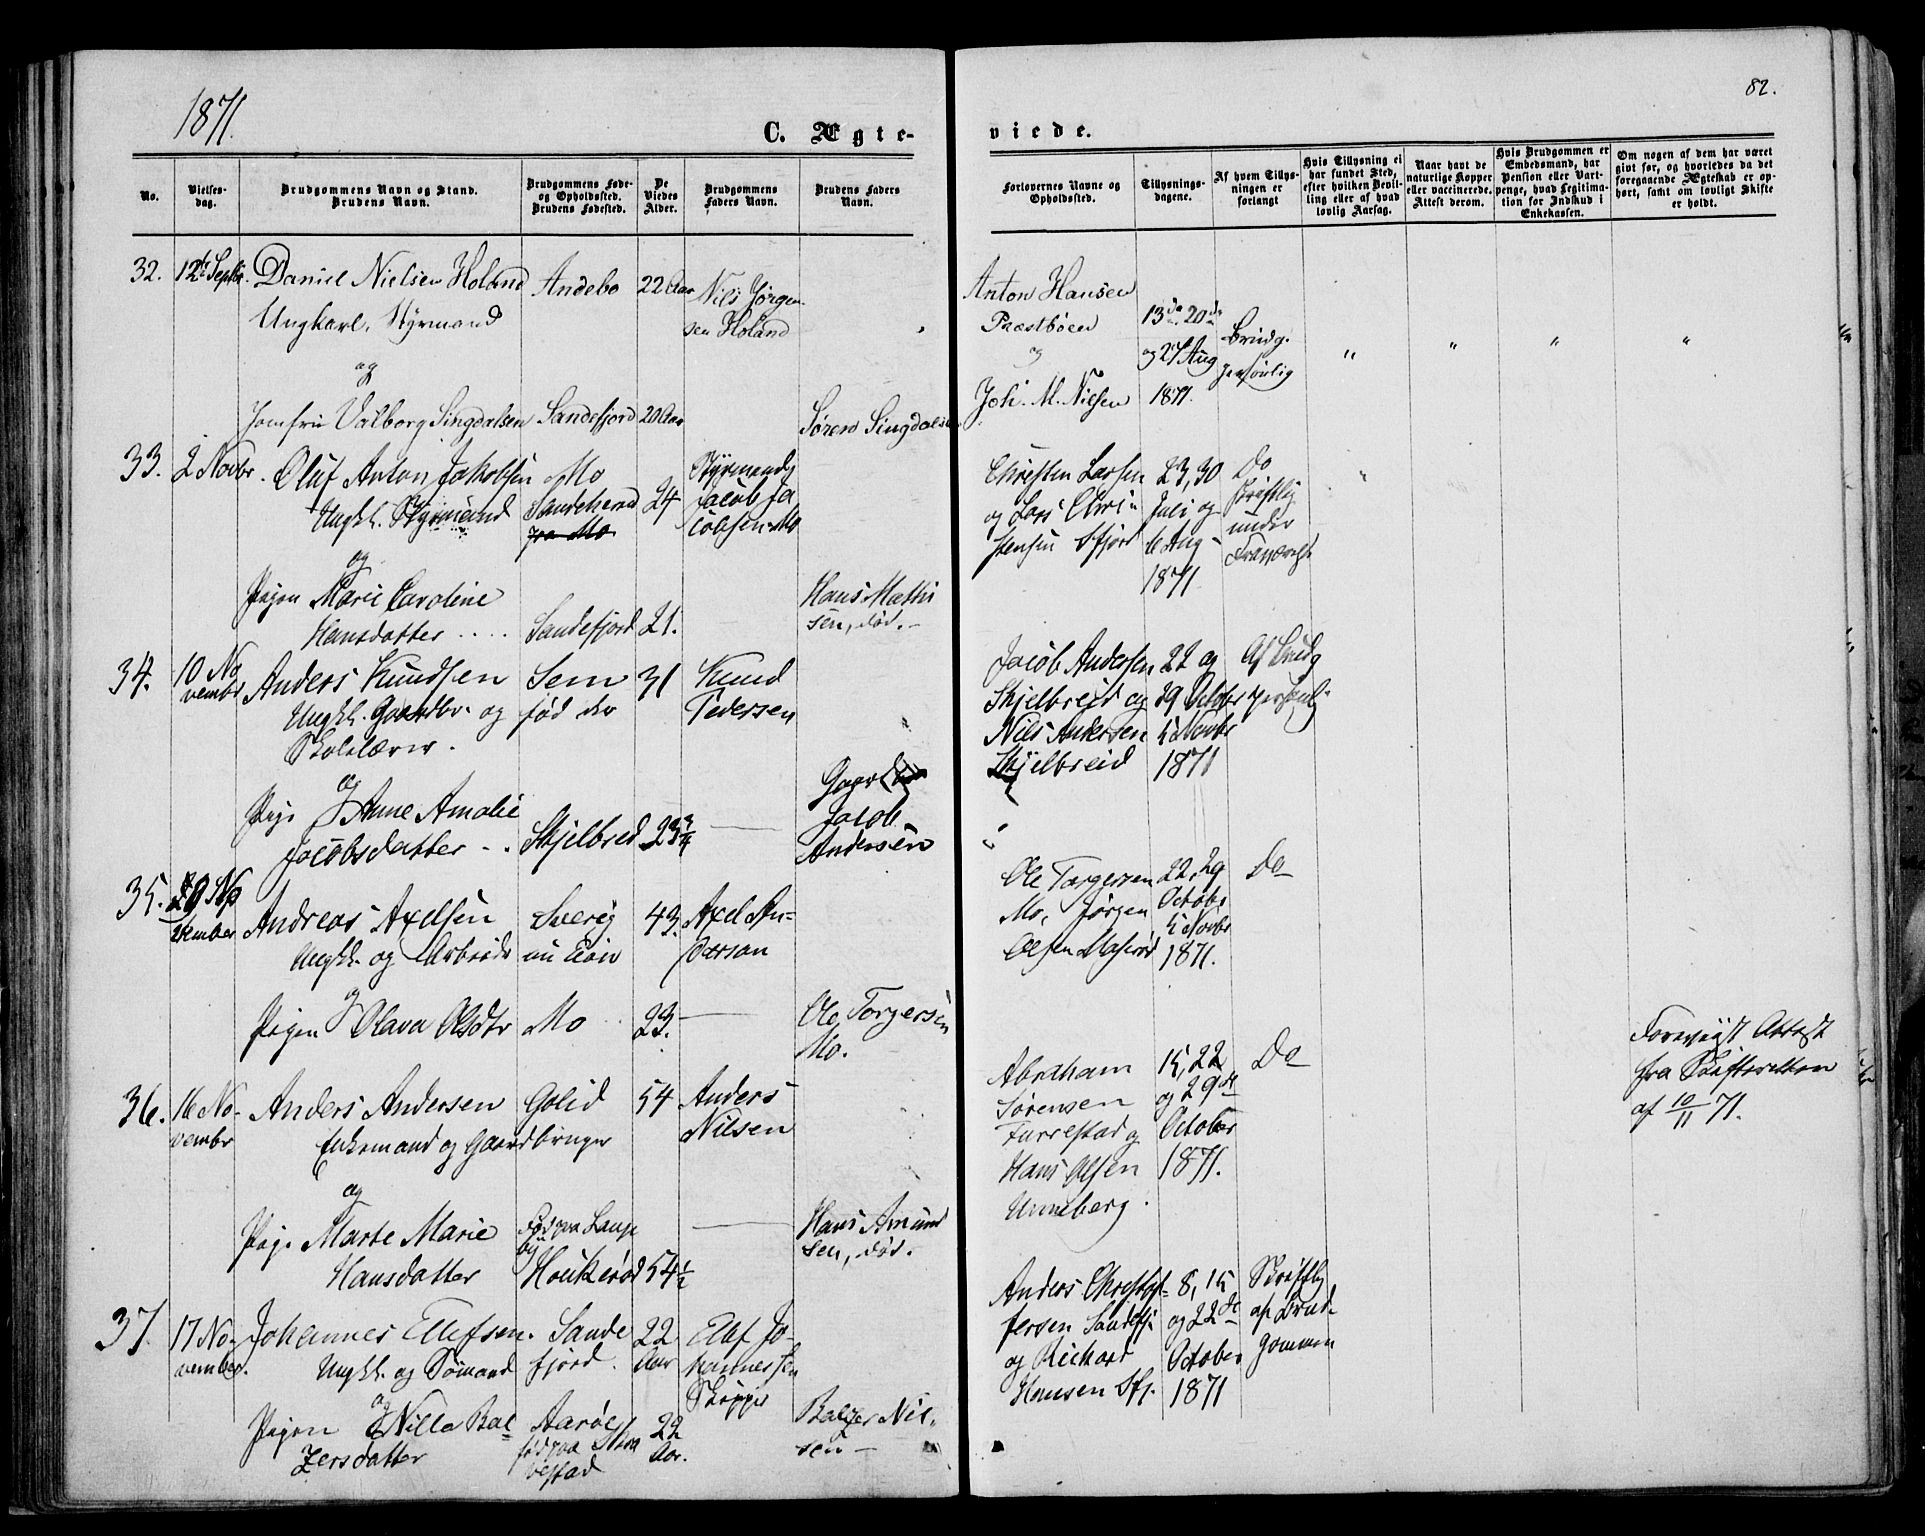 1871.
82.
C. Ægte-
viede.
No.
Vielses-
dag.
Brudgommens Navn og Stand.
Brudens Navn.
Brudgommens Føde-
og Opholdssted.
Brudens Fødested.
De
Viedes
Alder.
Brudgommens
Faders Navn.
Brudens Faders
Navn.
Forlovernes Navne og
Opholdssted.
Tillysnings-
dagene.
Af hvem Tillys-
ningen er
forlangt
Hvis Tillysning ei
har fundet Sted,
efter hvilken Bevil-
ling eller af hvad
lovlig Aarsag.
Naar havt de
naturlige Kopper
eller vaccinerede.
Attest derom.
Hvis Brudgommen er
Embedsmand, har
Pension eller Vart-
penge, hvad Legitima-
tion for Indskud i
Enkekassen.
Om nogen af dem har været
givt før, og hvorledes da det
foregaaende Ægteskab er op-
hørt, samt om lovligt Skifte
er holdt.
32.
12te Septbr.
Daniel Nielsen Holand
Ungkarl, Styrmand
og
Jomfru Valborg Singdalsen
Andebo
Sandefjord
22 Aar
20 Aar
Nils Jørgen-
sen Holand
Søren Singdalsen
Anton Hansen
Præstbøen
og
Joh. M. Nielsen
13de 20de
og 27 Aug
1871.
Brudg.
personlig
" " " "
33.
2 Novbr.
Oluf Anton Jakobsen
Ungkl. Styrmand
og
Pigen Marie Caroline
Hansdatter ....
Mo
Sandeherred
fra Mo
Sandefjord
24
21.
Styrmand
Jacob Ja
cobsen Mo
Hans Mathi
sen, død.-
Christen Larsen
og Lars Chri-
stensen Sfjord
23, 30
Juli og
6 Aug-
1871
Do
skriftlig
under
Fraværelse
34.
10 No
vembr
Anders Knudsen
Ungkl. Gaardbr. og
Skolelærer.
og
Pige Anne Amalie
Jacobsdatter - .
Sem
født der
Skjelbred
31
23 3/4
Knud
Pedersen
Jacob
Andersen
Jacob Andersen
Skjelbreid og
Nils Andersen
Skjelbreid
22 og
29 October
5 Novbr
1871
Af Brudg
personl.
35.
Andreas Axelsen
Ungkl. og Arbeider
og
Pigen Olava Olsdtr
Sverig
Mo
43.
23.
Axel An-
dersson
Ole Torgersen
Mo.
Ole Torgersen
Mo, Jørgen
Olsen
22, 29
October
5 Novbr
1871.
Do
36.
16 No-
vembr
Anders Andersen
Enkemand og Gaardbruger
og
Pige Marte Marie
Hansdatter
Golid
Haukerød
54
54 1/2
Anders
Nilsen
Hans Amund
sen, død.
Abraham
Sørensen
Furrestad og
Hans Olsen
Unneberg.
15, 22
og 29de
October
1871.
Do
Forevist Attest
fra Skifteretten
af 10/11 71.
37.
17 No-
vember.
Johannes Ellefsen.
Ungkl. og Sømand
og
Pigen Nille Bal
zersdatter
Sande
fjord.
Aarøe
22
Aar
22
Aar.
Ellef Jo-
hannessen
Skipper
Balzer Nil-
sen -
Anders Christof-
fersen Sandefj.
og Richard
Hansen Sfj.
8, 15
og 22de
October
1871
Skriftlig
af Brud-
gommen